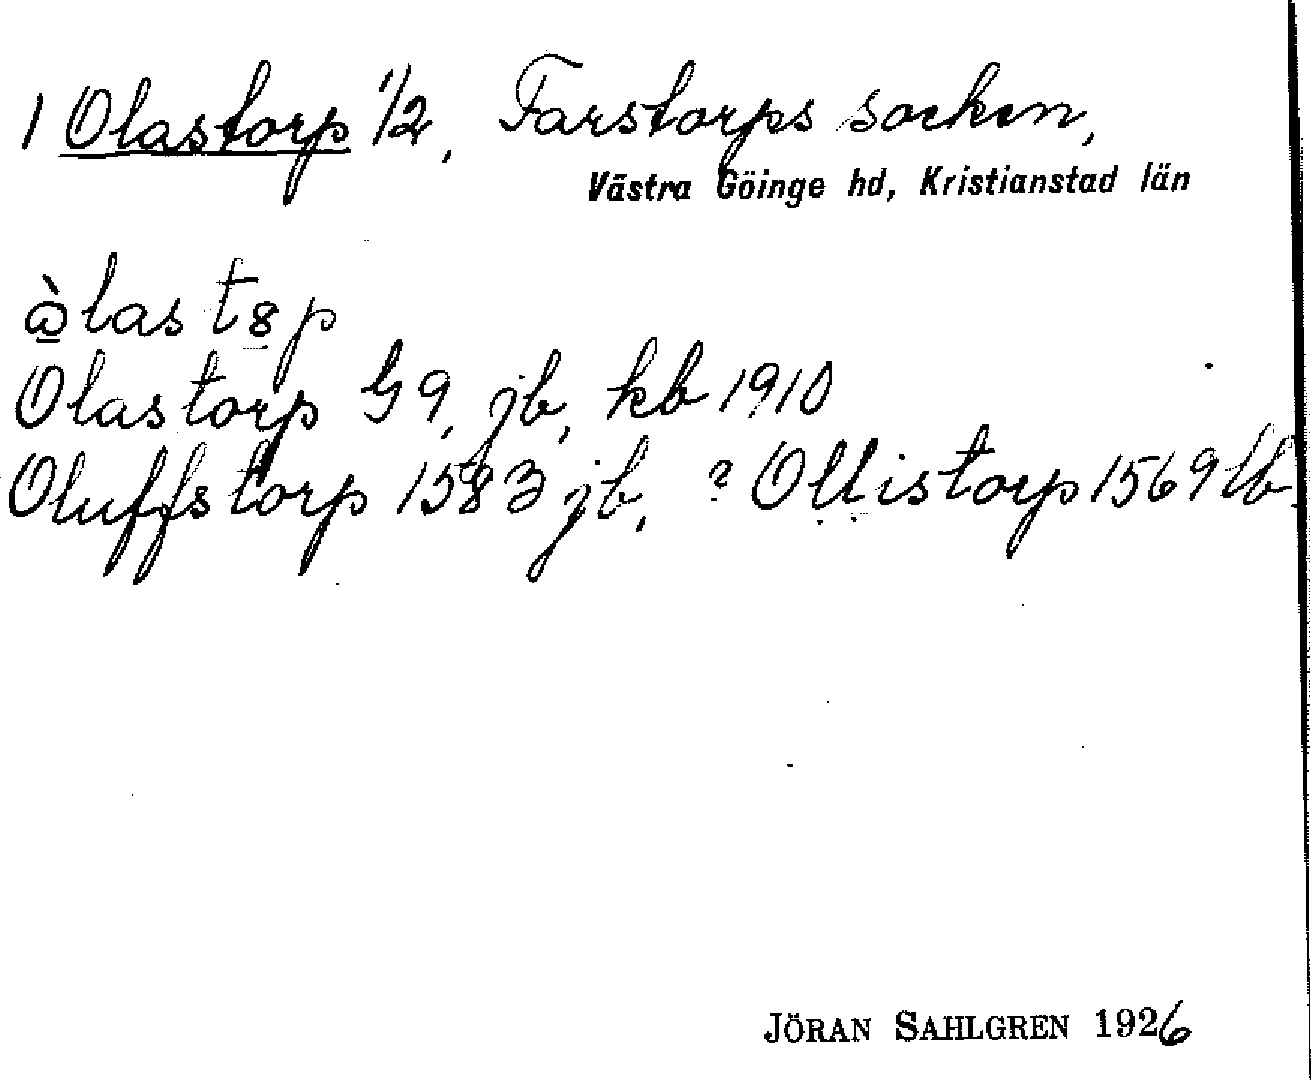 1 Olastorp 1/2, Farstorps socken,
Västra Göinge hd, Kristianstad län
Olastorp G9, jb, kb 1910
Oluffstorp 1583 jb, ? Ollistorp 1569 lb
JÖRAN SAHLGREN 1926